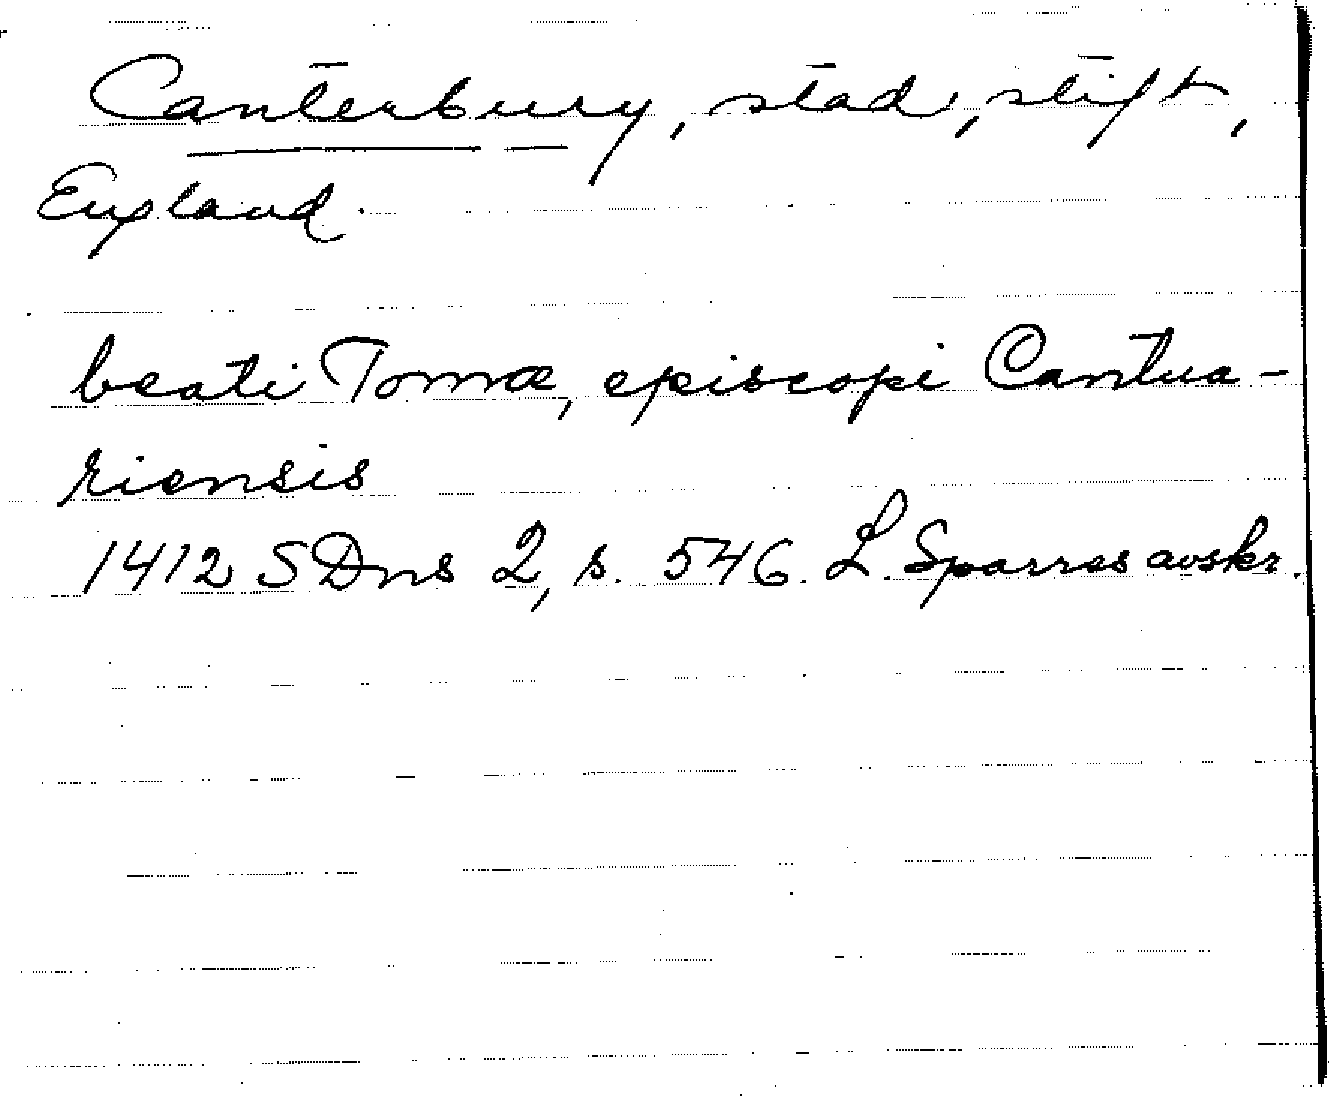 Canterbury, stad, stift,
England.
beati Tomæ, episcopi Cantua-
riensis
1412 SDns 2, s. 546. L. Sparres avskr.